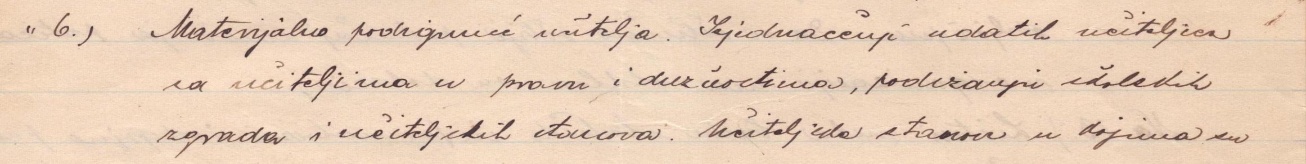 " 6.) Materijalno podignuće učitelja. Izjednačenje udatih učiteljica
sa učiteljima u pravu i dužnostima, podizanje školskih
zgrada i učiteljskih stanova. Učiteljske stanove u kojima su